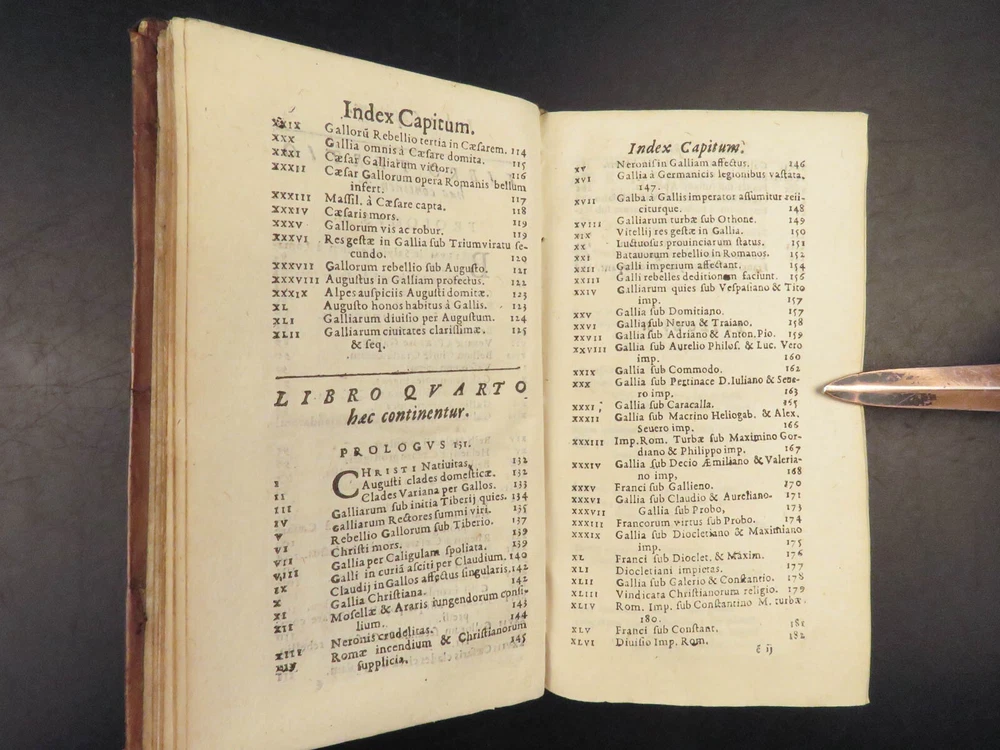 Index Capitum.
XXIX Gallorũ Rebellio tertia in Cæsarem. 114
XXX Gallia omnis à Cæsare domita. 115
XXXI Cæsar Galliarum victor. 116
XXXII Cæsar Gallorum opera Romanis bellum
infert. 117
XXXIII Massil. à Cæsare capta. 118
XXXIV Cæsaris mors. 119
XXXV Gallorum vis ac robur. 119
XXXVI Res gestæ in Gallia sub Triumviratu se-
cundo. 120
XXXVII Gallorum rebellio sub Augusto. 121
XXXVIII Augustus in Galliam profectus. 122
XXXIX Alpes auspiciis Augusti domitæ. 123
XL Augusto honos habitus à Gallis. 123
XLI Galliarum diuisio per Augustum. 124
XLII Galliarum ciuitates clarissimæ. 125
& seq.
LIBRO QVARTO
hæc continentur.
PROLOGVS 131.
I CHRISTI Natiuitas. 132
II Augusti clades domesticæ. 132
III Clades Variana per Gallos. 133
IV Galliarum sub initia Tiberij quies. 134
V Galliarum Rectores summi viri. 135
VI Rebellio Gallorum sub Tiberio. 137
VII Christi mors. 139
VIII Gallia per Caligulam spoliata. 139
IX Galli in curiã asciti per Claudium. 140
X Claudij in Gallos affectus singularis. 142
XI Gallia Christiana. 142
XII Mosellæ & Araris iungendorum consi-
lium. 143
XIII Neronis crudelitas. 144
XIV Romæ incendium & Christianorum
supplicia. 145
Index Capitum.
XV Neronis in Galliam affectus. 146
XVI Gallia à Germanicis legionibus vastata.
147.
XVII Galba à Gallis imperator assumitur reii-
citurque. 148
XVIII Galliarum turbæ sub Othone. 149
XIX Vitellij res gestæ in Gallia. 150
XX Luctuosus prouinciarum status. 151
XXI Batauorum rebellio in Romanos. 152
XXII Galli imperium affectant. 154
XXIII Galli rebelles deditionem faciunt. 156
XXIV Galliarum quies sub Vespasiano & Tito
imp. 157
XXV Gallia sub Domitiano. 157
XXVI Gallia sub Nerua & Traiano. 158
XXVII Gallia sub Adriano & Anton. Pio. 159
XXVIII Gallia sub Aurelio Philos. & Luc. Vero
imp. 160
XXIX Gallia sub Commodo. 162
XXX Gallia sub Pertinace D. Iuliano & Seue-
ro imp. 163
XXXI Gallia sub Caracalla. 165
XXXII Gallia sub Macrino Heliogab. & Alex.
Seuero imp. 165
XXXIII Imp. Rom. Turbæ sub Maximino Gor-
diano & Philippo imp. 167
XXXIV Gallia sub Decio Æmiliano & Valeria-
no imp. 168
XXXV Franci sub Gallieno. 170
XXXVI Gallia sub Claudio & Aureliano. 171
XXXVII Gallia sub Probo, 173
XXXIII Francorum virtus sub Probo. 174
XXXIX Gallia sub Diocletiano & Maximiano
imp. 175
XL Franci sub Dioclet. & Maxim. 176
XLI Diocletiani impietas. 177
XLII Gallia sub Galerio & Constantio. 178
XLIII Vindicata Christianorum religio. 179
XLIV Rom. Imp. sub Constantino M. turbæ.
180.
XLV Franci sub Constant. 181
XLVI Diuisio Imp. Rom. 182
ẽ ij